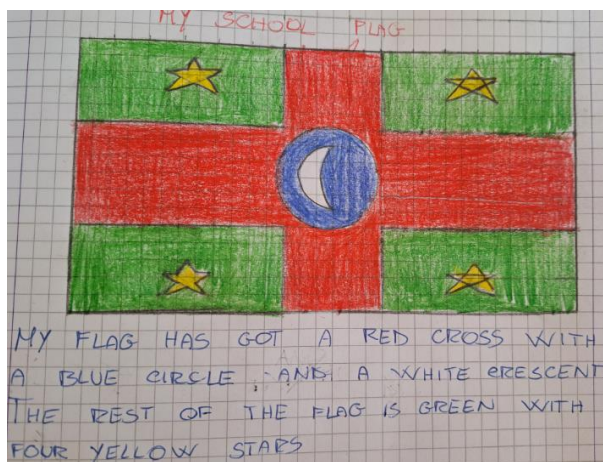 MY SCHOOL FLAG
MY FLAG HAS GOT A RED CROSS WITH
A BLUE CIRCLE AND A WHITE CRESCENT
THE REST OF THE FLAG IS GREEN WITH
FOUR YELLOW STARS